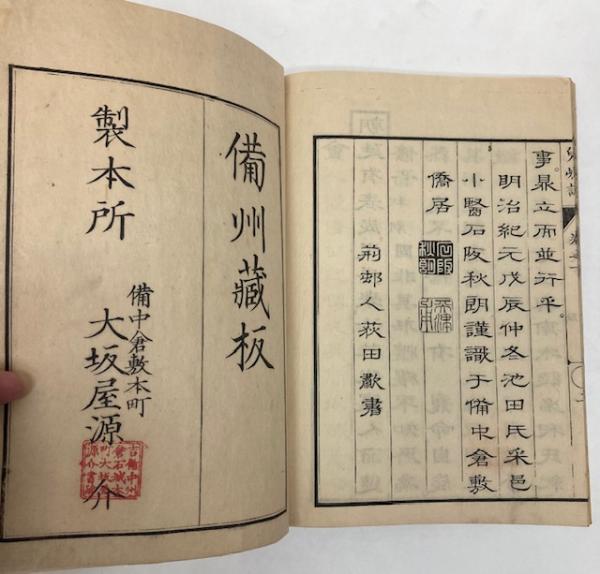 事鼎立而並行乎。
明治紀元戊辰仲冬池田氏采邑
小醫石阪秋朗謹識于備中倉敷
僑居
荊邨人荻田歗書
備州藏板
製本所
備中倉敷本町
大坂屋源介